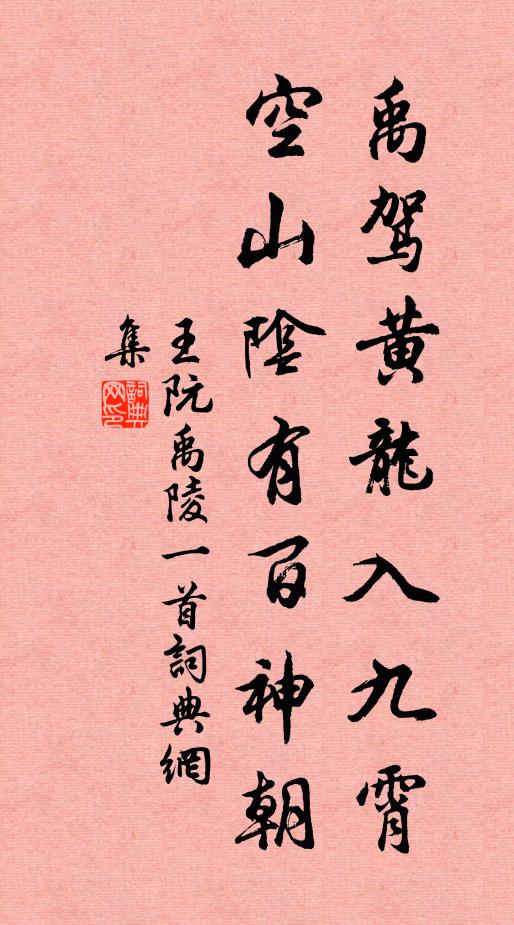 禹駕黃龍入九霄
空山陰有百神朝
王阮禹陵一首詞典網
集
詞典
网印